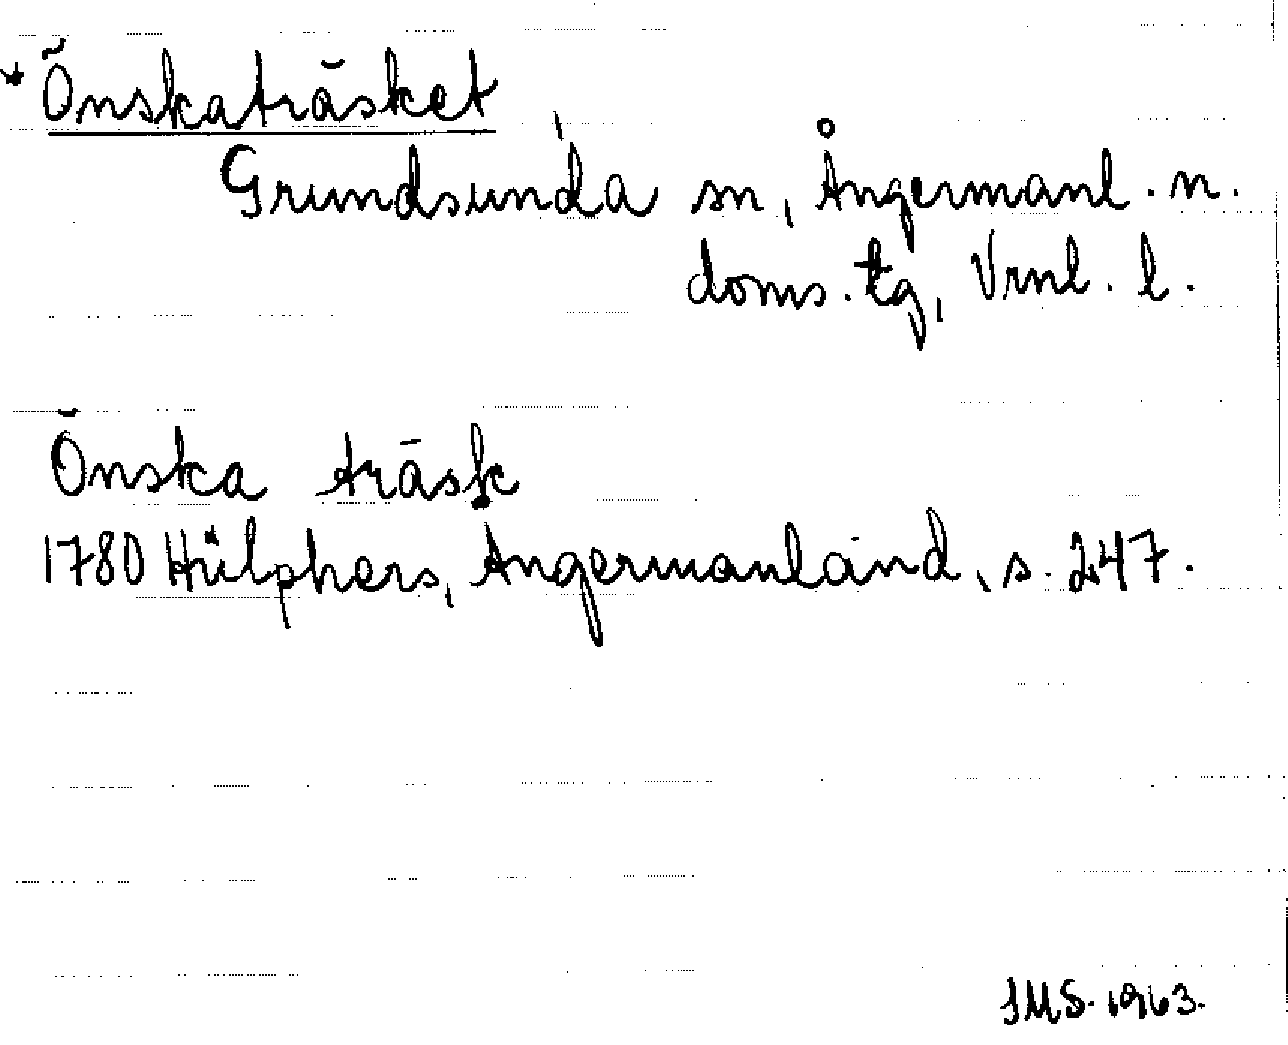 * Önskaträsket
Grundsunda sn, Ångermanl. n.
doms. tg, Vrnl. l.
Önska träsk
1780 Hülphers, Angermanland, s. 247.
JMS. 1963.